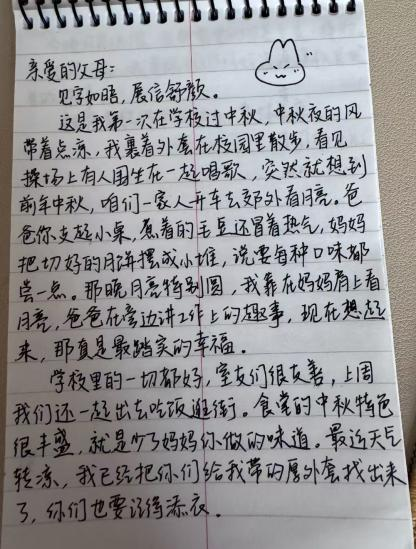 亲爱的父母:
见字如晤,展信舒颜。
这是我第一次在学校过中秋,中秋夜的风
带着点凉,我裹着外套在校园里散步,看见
操场上有人围坐在一起唱歌,突然就想到
前年中秋,咱们一家人开车去郊外看月亮。爸
爸你支起小桌,煮着的毛豆还冒着热气,妈妈
把切好的月饼摆成小堆,说要每种口味都
尝一点。那晚月亮特别圆,我靠在妈妈肩上看
月亮,爸爸在旁边讲工作上的趣事,现在想起
来,那真是最踏实的幸福。
学校里的一切都好,室友们很友善,上周
我们还一起出去吃饭逛街。食堂的中秋特色
很丰盛,就是少了妈妈你做的味道。最近天气
转凉,我已经把你们给我带的厚外套找出来
了,你们也要记得添衣。